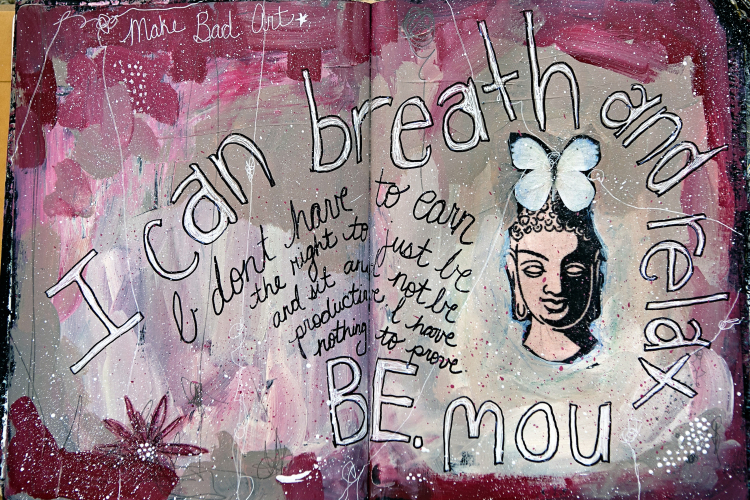 Make Bad Art
I can breath and relax
I dont have to earn
the right to just be
and sit and not be
productive. I have
nothing to prove
BE. mou